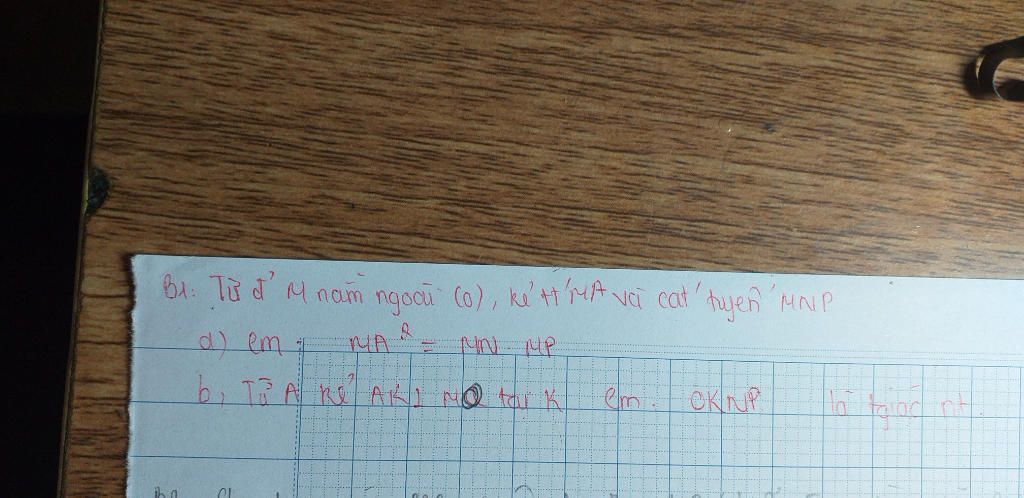 B1: Từ đ' M nằm ngoài (O), kẻ tt' MA và cát tuyến MNP
a) cm: MA² = MN. MP
b, Từ A kẻ AK ⊥ MO tại K cm. OKNP là tgiác nt.